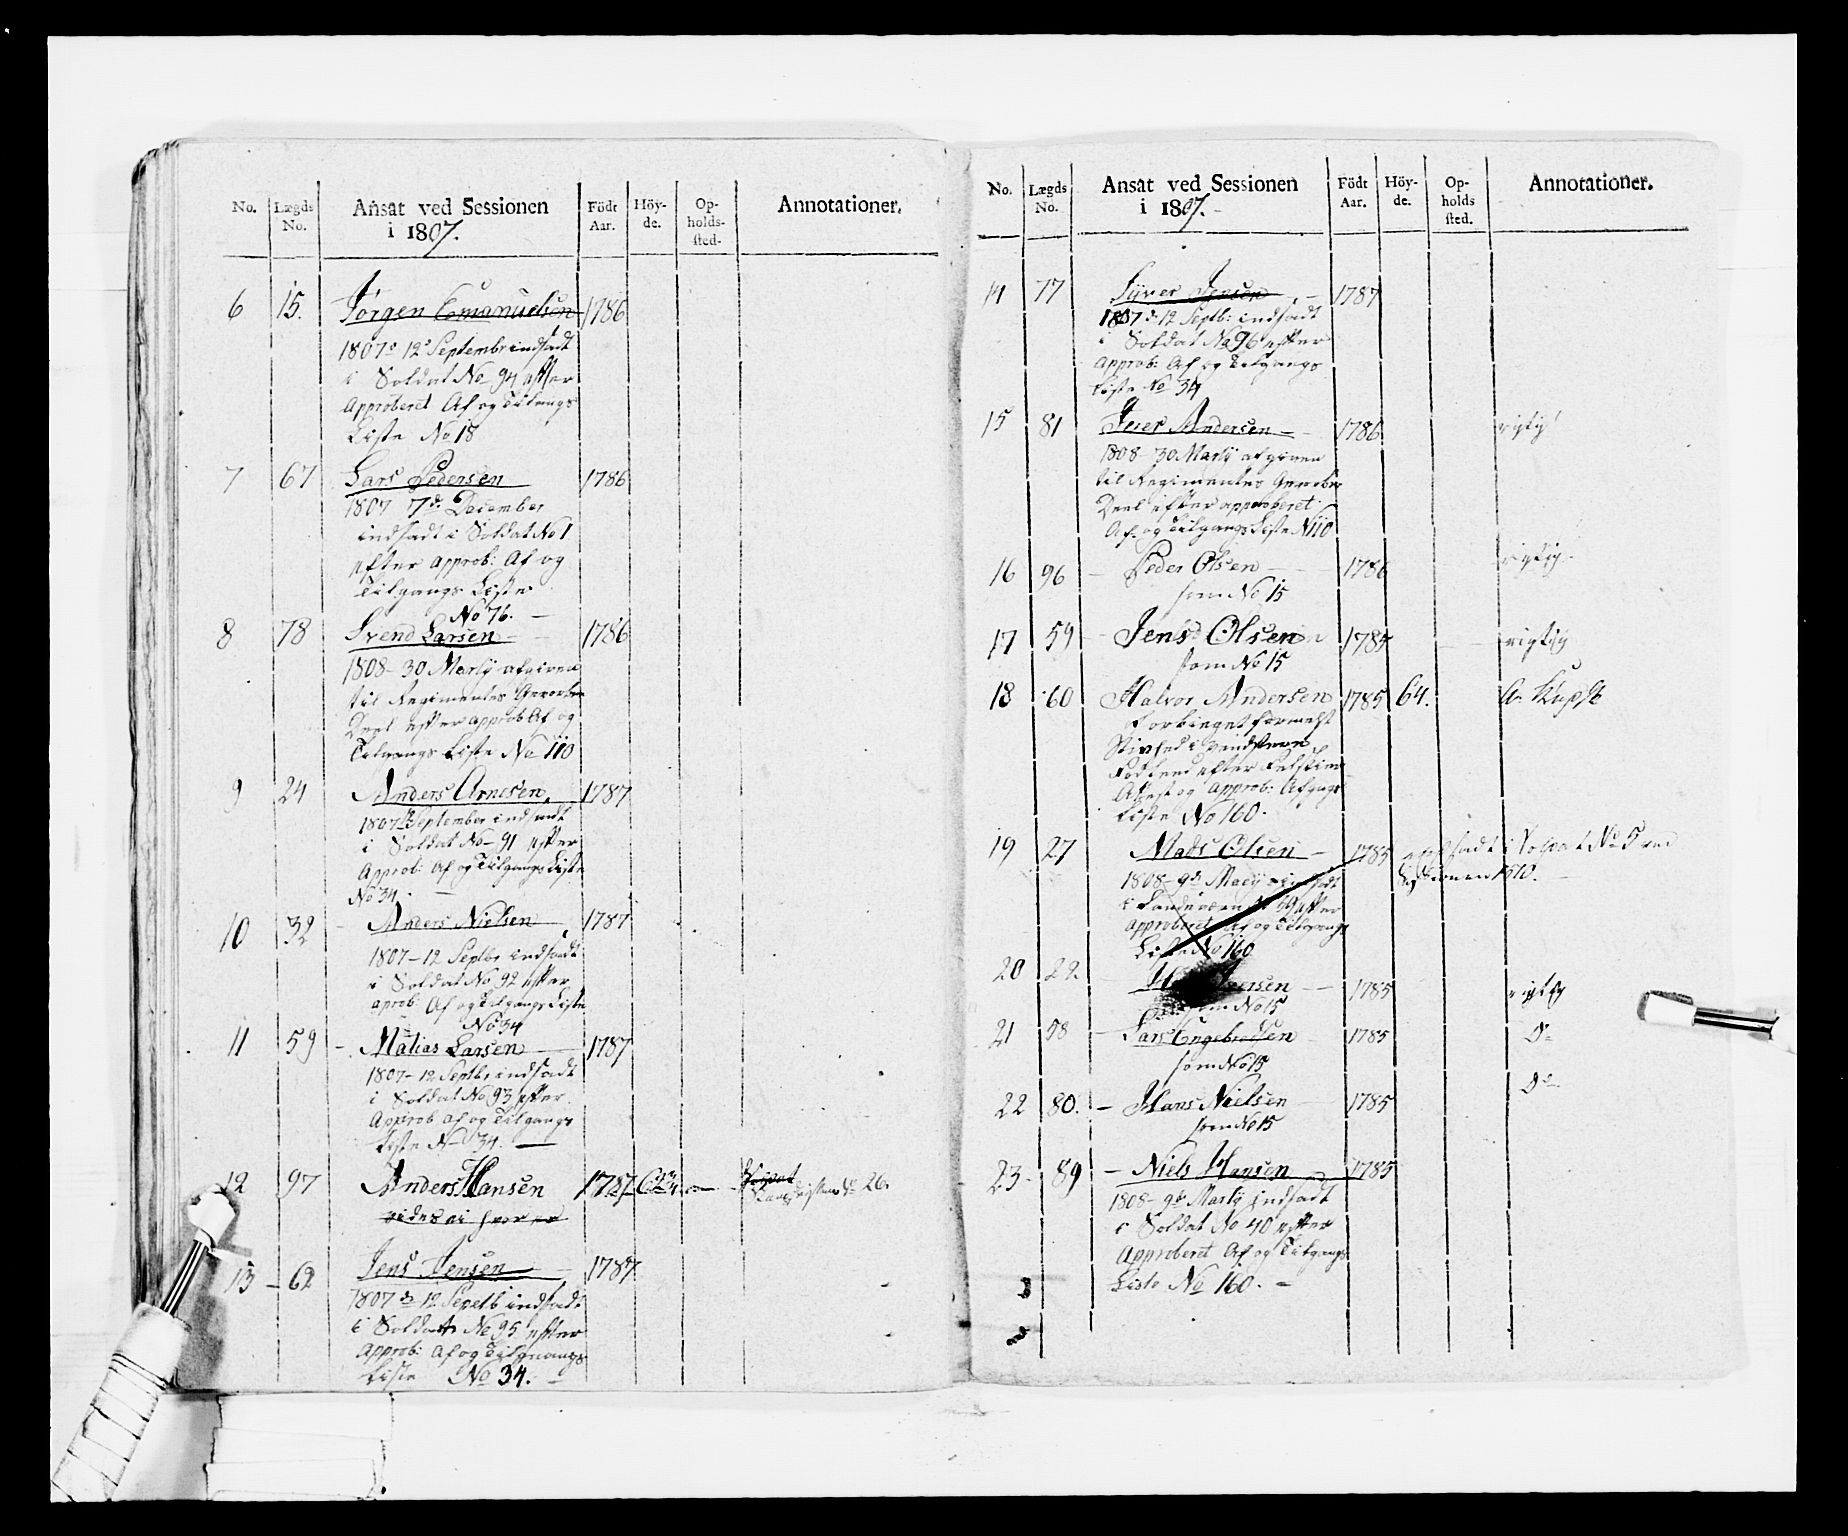 No. Lægds No. Ansat ved Sessionen i 1807. Födt Aar. Höy-de. Op-holds-sted. Annotationer.
6 15. Jörgen Emanuelsen 1786
1807 12 Septembr indsadt
i Soldat No 94 efter
Approberet Af og Tilgangs
Liste No 18
7 67 Lars Pedersen 1786
1807 7d. December
indsadt i Soldat No 1
efter approb: Af og
Tilgangs Liste
No 76.
8 78 Svend Larsen 1786
1808 - 30 Martÿ afgiven
til Regimentes
Deel efter approb Af og
Tilgangs Liste No 110
9 24 Anders Arnesen 1787
1807 12 September indsadt
i Soldat No - 91 efter
Approb: Af og Tilgangs Liste
No 34.
10 32 Anders Nielsen 1787
1807 - 12 Septbr indsadt
i Soldat No 92 efter
aprob: Af og Tilgangs Liste
No 34
11 59 Matias Larsen 1787
1807 - 12 Septbr indsadt
i Soldat No 93 efter
Approb Af og Tilgangs
Liste No 34.
12 97 Anders Hansen 1787 26.
13 62 Jens Jensen 1787
1807 d 12 Septb indsadt
i Soldat No 95 efter
Approb: Af og Tilgangs
Liste No 34.
No. Lægds No. Ansat ved Sessionen i 1807. Födt Aar. Höy-de. Op-holds sted. Annotationer.
14 77 Syver Jensen 1787
1807 d. 12 Septb: indsadt
i Soldat No 96 efter
Approb: Af og Tilgangs
Liste No 34
15 81 Andersen 1786 rigtig
1808 - 30 Martÿ afgiven
til Regimentes
Deel efter approberet
Af og Tilgangs Liste N 110
16 96 Peder Olsen 1786 rigtig
som No 15
17 59 Jens Olsen 1785 rigtig
som No 15
18 60 Halvor Andersen 1785 64.
Stivhed i venstre
efter
Attest og Approb: Afgangs
Liste No 160.
19 27 Mads Olsen 1785 indsadt i Soldat No 5 ved
Sessionen 1810.
1808 - 9d Martÿ indsadt
i Landeværn efter
approberet Af og Tilgangs
Liste No 160
20 22 1785 rigtig
som No 15
21 58 Lars Engebretsen 1785 Do
som No 15
22 80. Hans Nielsen 1785 Do
som No 15
23 89 Niels Hansen 1785
1808 - 9d Martÿ indsadt
i Soldat No 40 efter
Approberet Af og Tilgangs
Liste No 160.